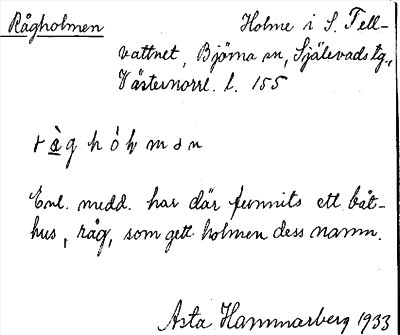 Rågholmen
Holme i S. Tell-
vattnet, Björna sn, Själevads tg.,
Västernorrl. l. 155
Enl. medd. har där funnits ett båt-
hus, råg, som gett holmen dess namn.
Asta Hammarberg 1933